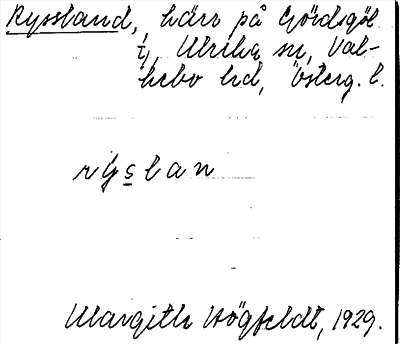 Ryssland, kärr på Gördsgöl
i, Ulrika sn, Val-
kebo hd, Österg. l.
rysḷan
Margith Högfeldt, 1929.